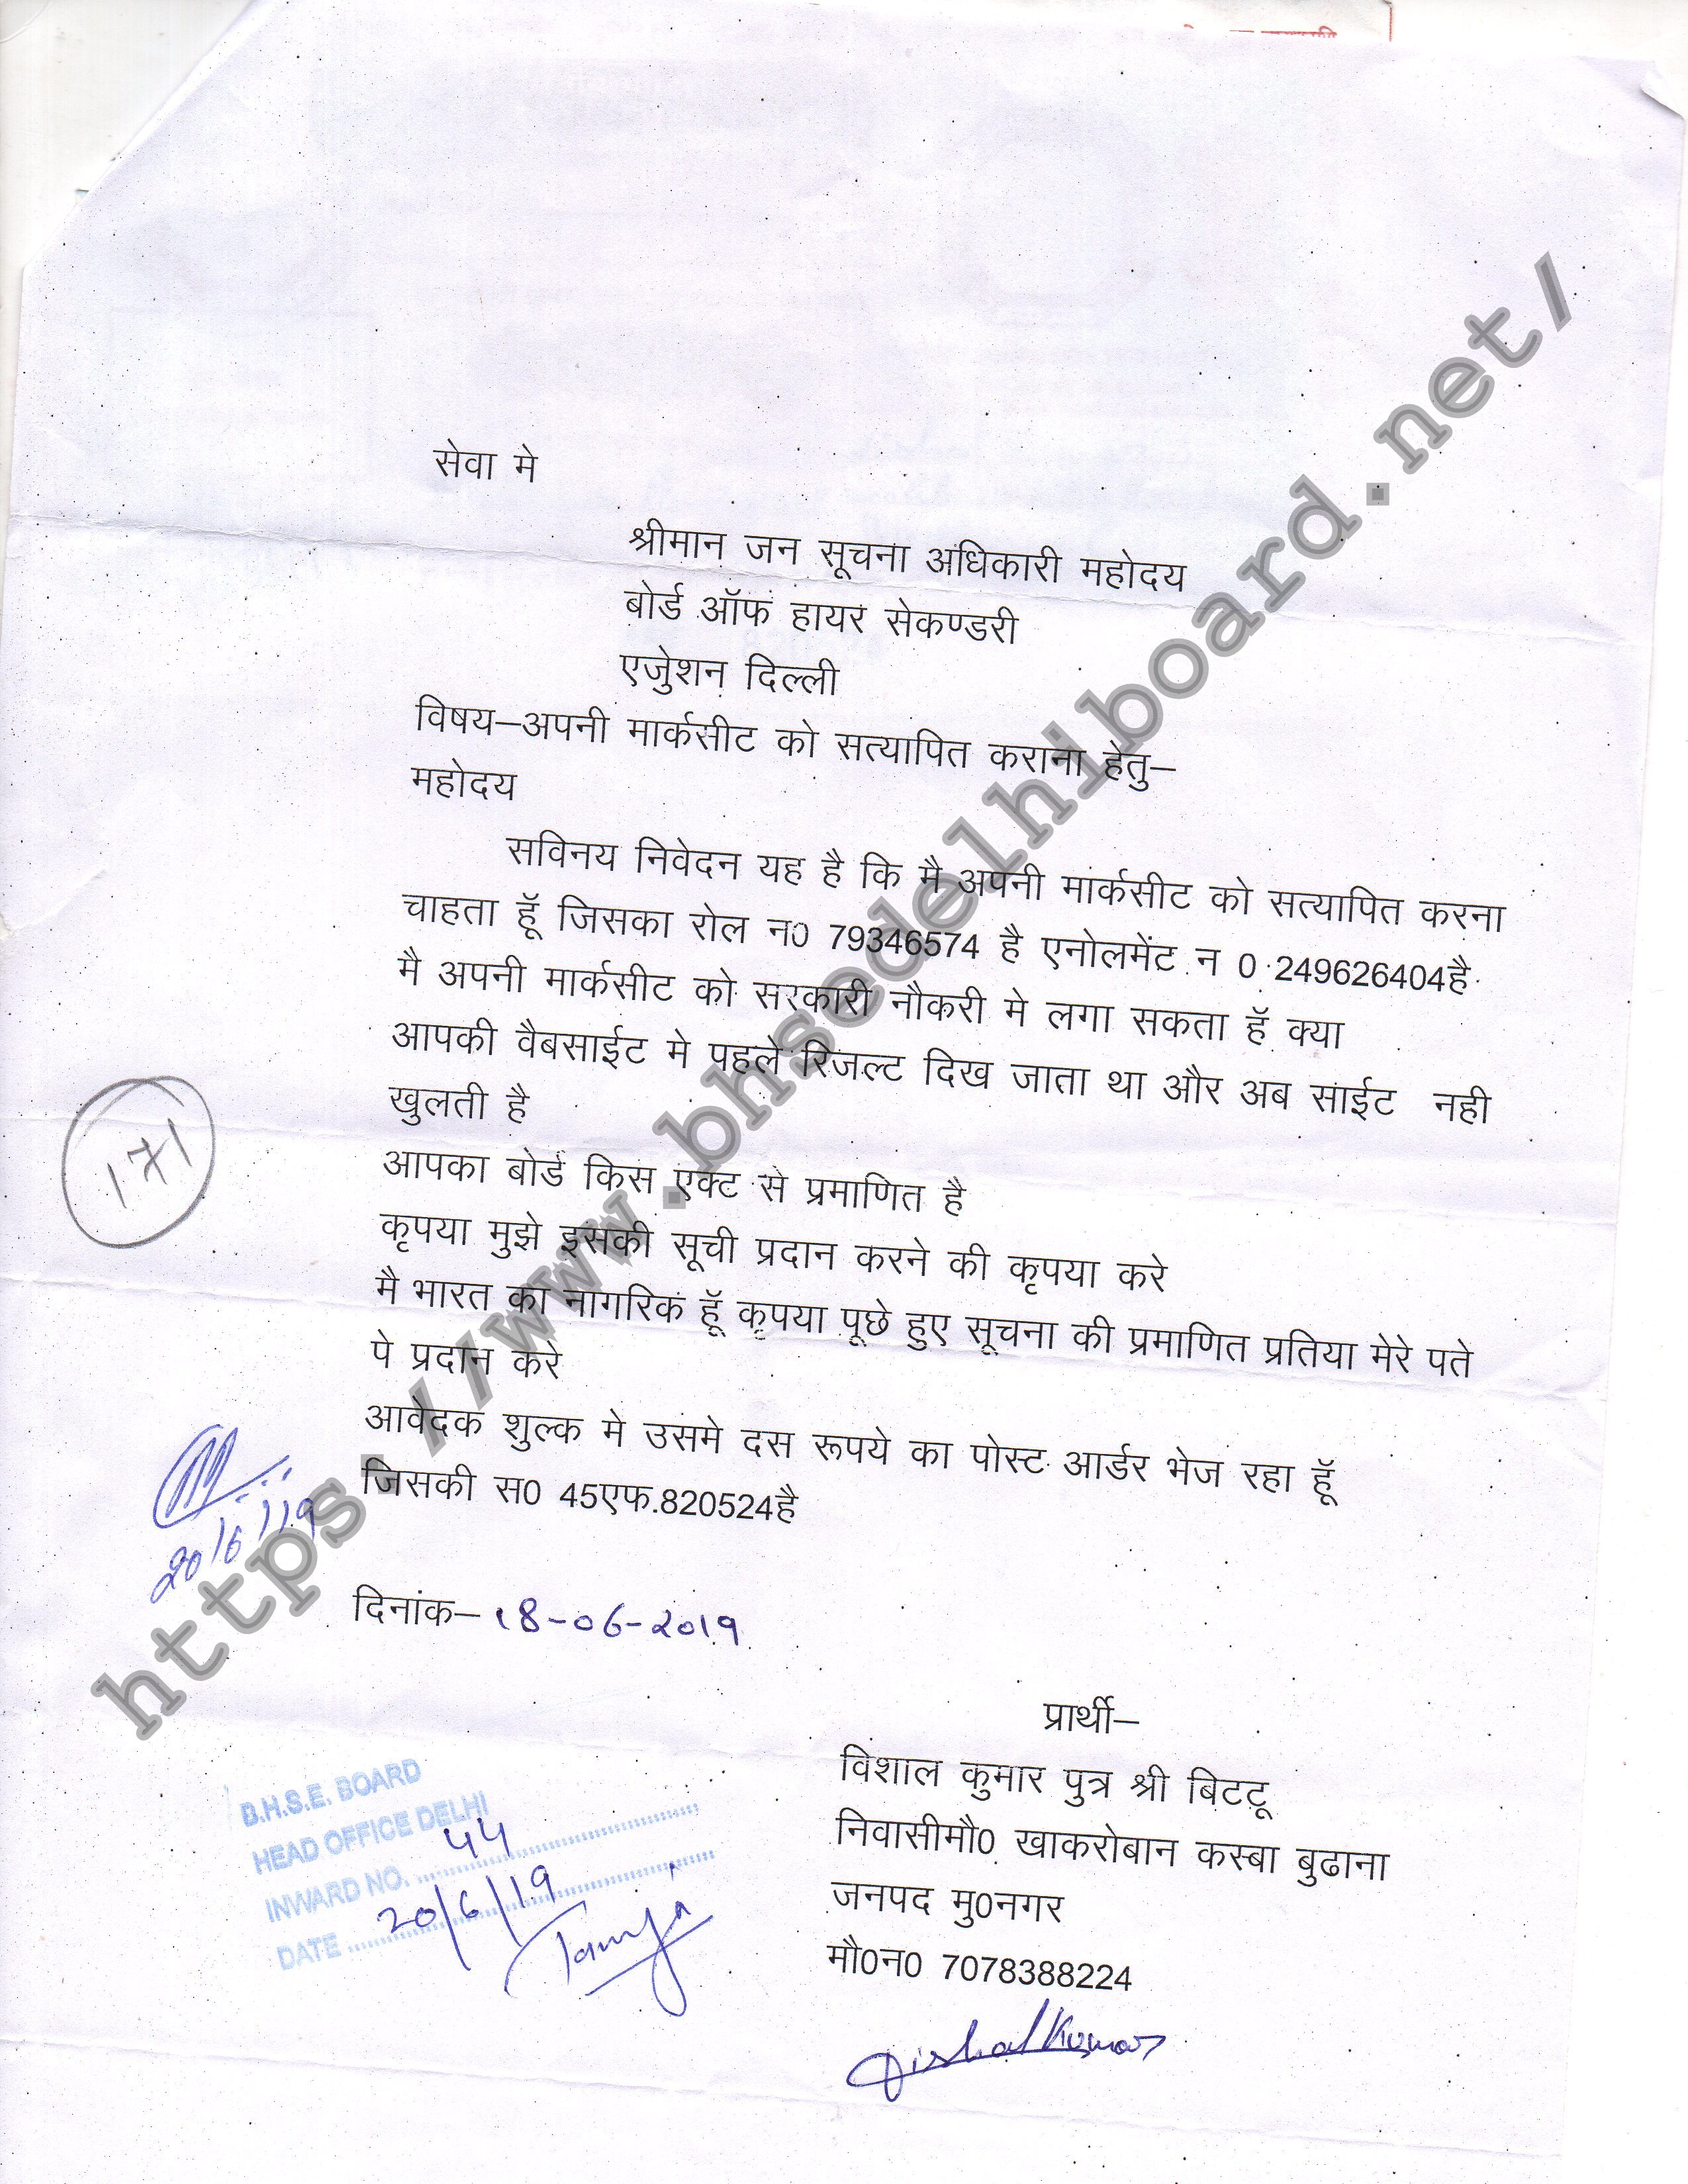 सेवा मे
श्रीमान जन सूचना अधिकारी महोदय
बोर्ड ऑफ हायर सेकण्डरी
एजुेशन दिल्ली
विषय–अपनी मार्कसीट को सत्यापित कराना हेतु–
महोदय
सविनय निवेदन यह है कि मै अपनी मार्कसीट को सत्यापित करना
चाहता हॅू जिसका रोल न0 79346574 है एनोलमेंट न 0 249626404है
मै अपनी मार्कसीट को सरकारी नौकरी मे लगा सकता हॅ क्या
आपकी वैबसाईट मे पहले रिजल्ट दिख जाता था और अब साईट नही
खुलती है
आपका बोर्ड किस एक्ट से प्रमाणित है
कृपया मुझे इसकी सूची प्रदान करने की कृपया करे
मै भारत का नागरिक हॅू कृपया पूछे हुए सूचना की प्रमाणित प्रतिया मेरे पते
पे प्रदान करे
आवेदक शुल्क मे उसमे दस रूपये का पोस्ट आर्डर भेज रहा हॅू
जिसकी स0 45एफ.820524है
171
20/6/19
दिनांक– 18-06-2019
प्रार्थी–
विशाल कुमार पुत्र श्री बिटटू
निवासीमौ0 खाकरोबान कस्बा बुढाना
जनपद मु0नगर
मौ0न0 7078388224
Vishal Kumar
B.H.S.E. BOARD
HEAD OFFICE DELHI
INWARD NO. 44
DATE 20/6/19
https://www.bhsedelhiboard.net/